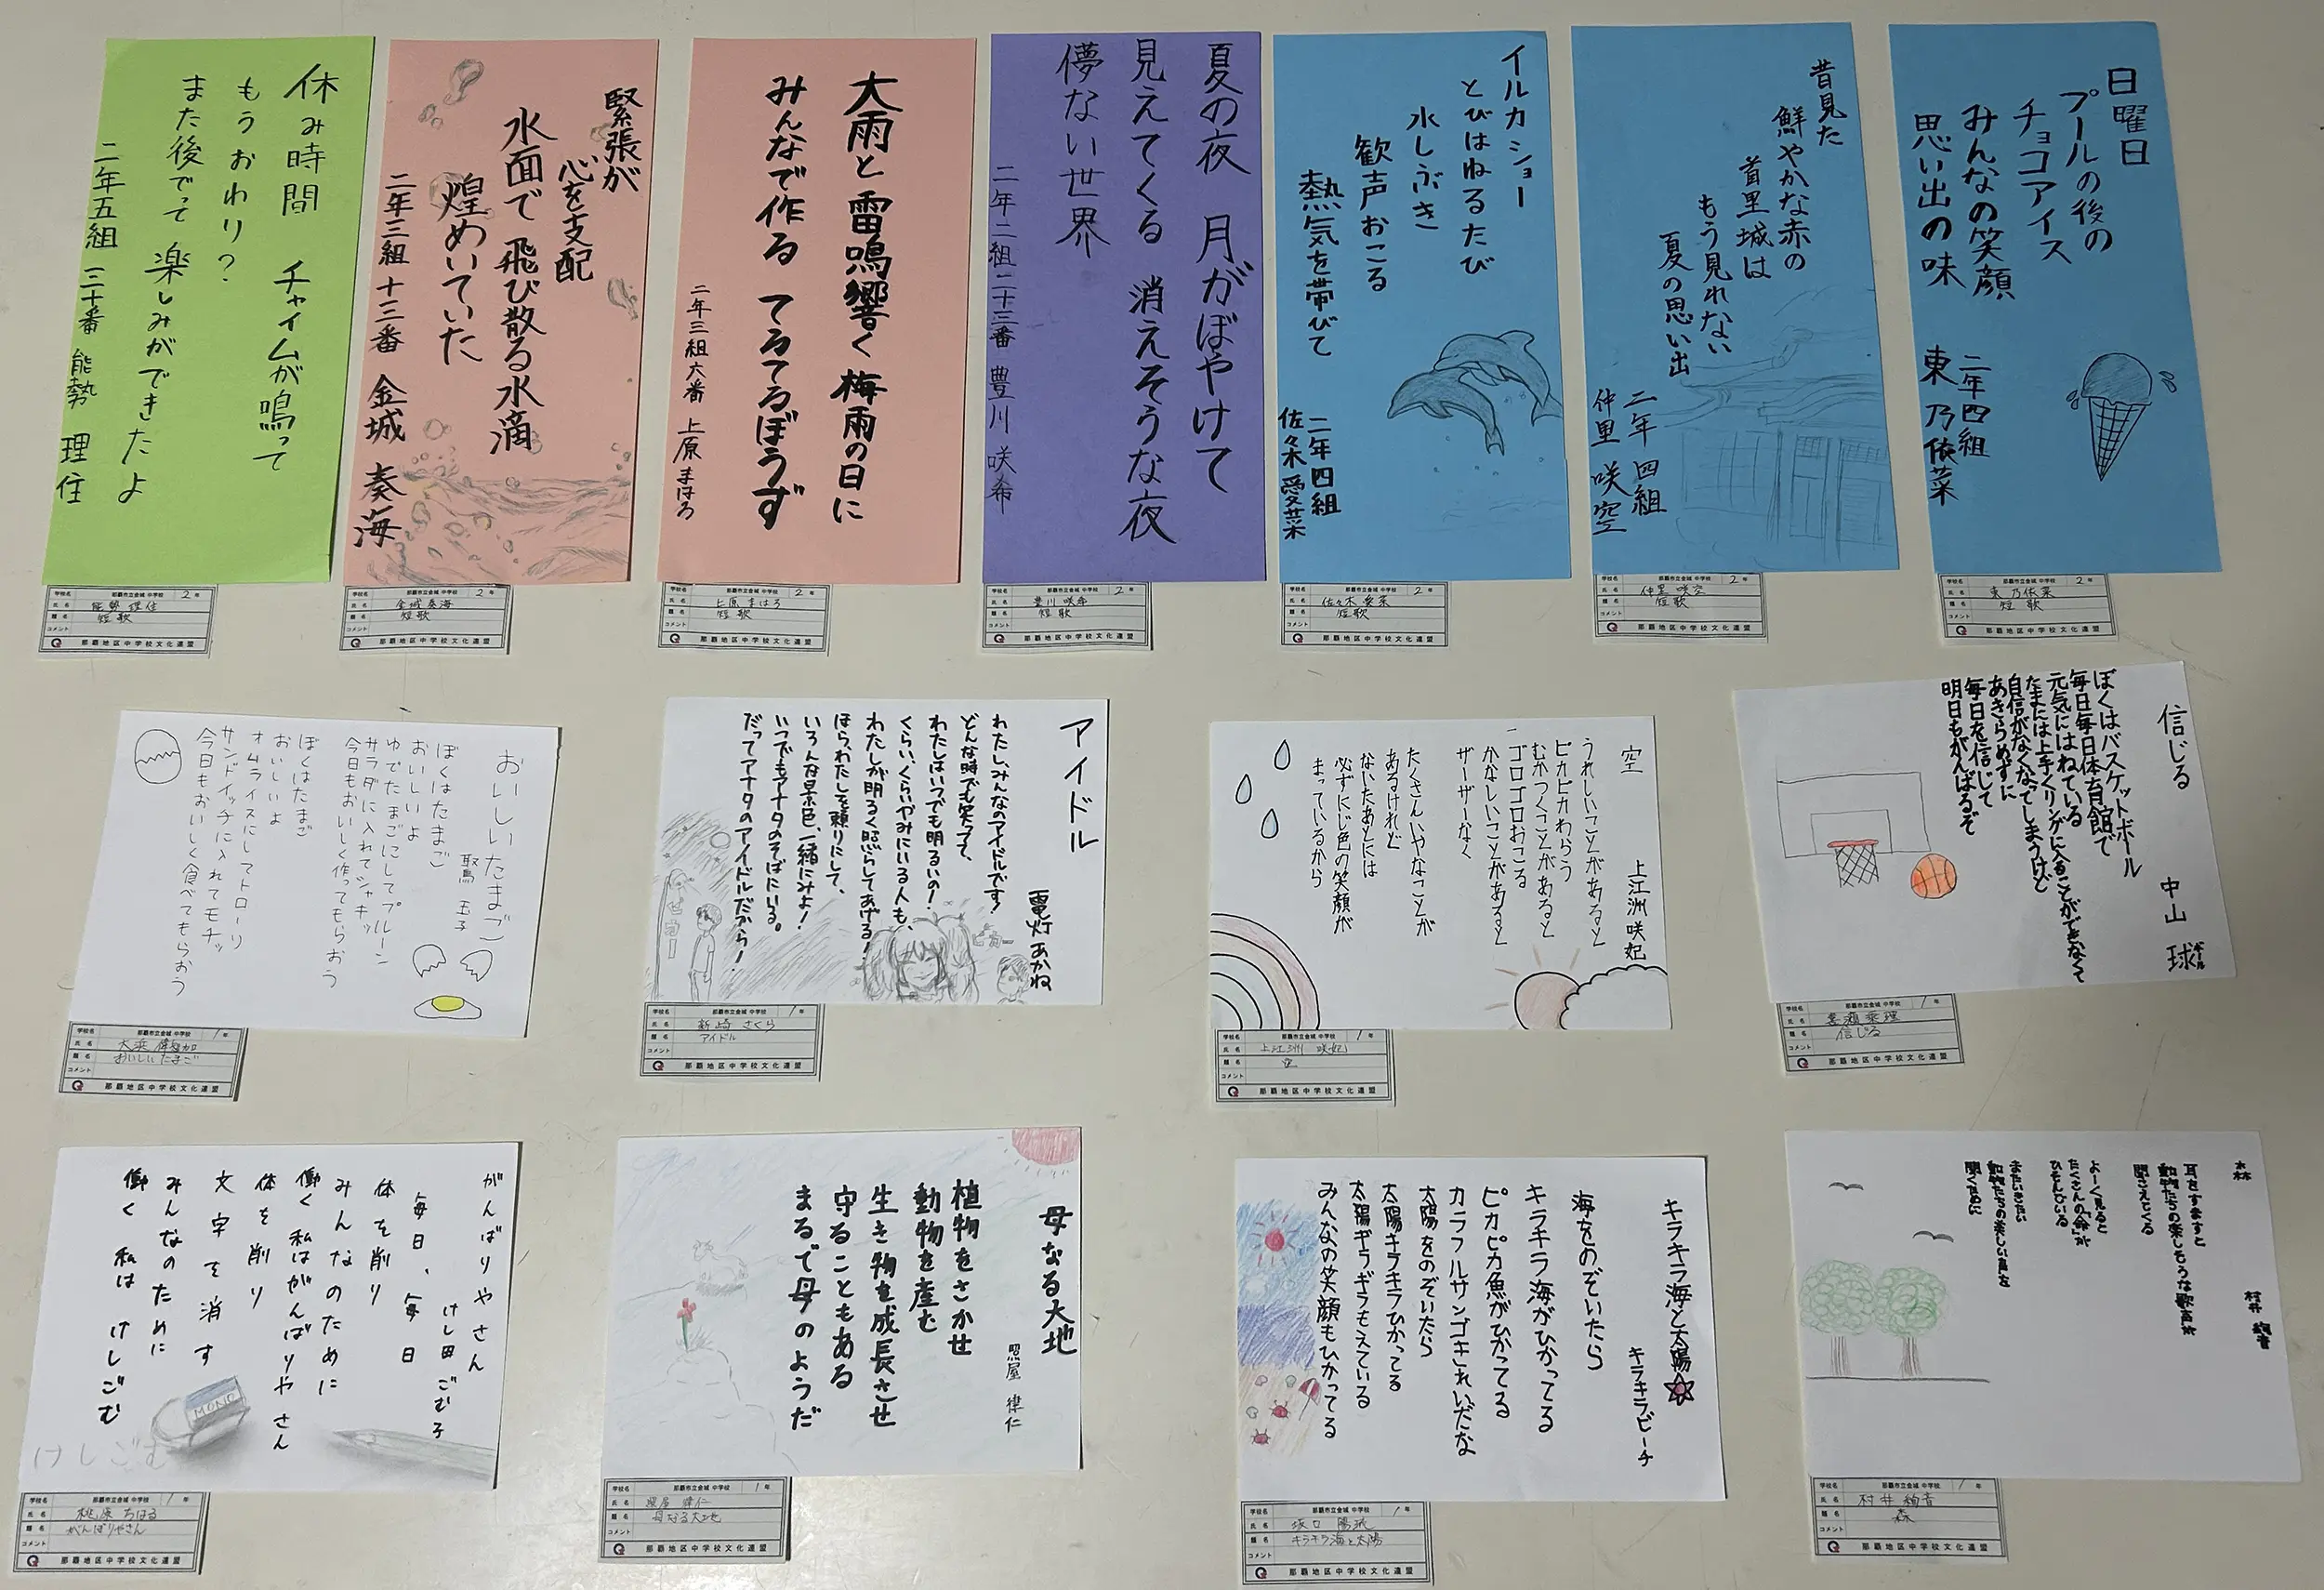 休み時間 チャイムが鳴って
もうおわり?
また後でって 楽しみができたよ
二年五組 三十番 能勢 理住
学校名 那覇市立金城 中学校 2年
氏名 能勢 理住
題名 短歌
コメント
那覇地区中学校文化連盟
緊張が
心を支配
水面で 飛び散る水滴
煌めいていた
二年三組 十三番 金城 奏海
学校名 那覇市立金城 中学校 2年
氏名 金城奏海
題名 短歌
コメント
那覇地区中学校文化連盟
大雨と 雷鳴響く 梅雨の日に
みんなで作る てるてるぼうず
二年三組六番 上原 まはろ
学校名 那覇市立金城 中学校 2年
氏名 上原 まはろ
題名 短歌
コメント
那覇地区中学校文化連盟
夏の夜 月がぼやけて
見えてくる 消えそうな夜
儚ない世界
二年二組二十三番 豊川 咲希
学校名 那覇市立金城 中学校 2年
氏名 豊川 咲希
題名 短歌
コメント
那覇地区中学校文化連盟
イルカショー
とびはねるたび
水しぶき
歓声おこる
熱気を帯びて
二年四組
佐々木愛菜
学校名 那覇市立金城 中学校 2年
氏名 佐々木 愛菜
題名 短歌
コメント
那覇地区中学校文化連盟
昔見た
鮮やかな赤の
首里城は
もう見れない
夏の思い出
二年 四組
仲里 咲空
学校名 那覇市立金城 中学校 2年
氏名 仲里 咲空
題名 短歌
コメント
那覇地区中学校文化連盟
日曜日
プールの後の
チョコアイス
みんなの笑顔
思い出の味
二年四組
東 乃依菜
学校名 那覇市立金城 中学校 2年
氏名 東 乃依菜
題名 短歌
コメント
那覇地区中学校文化連盟
おいしいたまご
鶏 玉子
ぼくはたまご
おいしいよ
ゆでたまごにしてプルーン
サラダに入れてシャキッ
今日もおいしく作ってもらおう
ぼくはたまご
おいしいよ
オムライスにしてトローリ
サンドイッチに入れてモチッ
今日もおいしく食べてもらおう
学校名 那覇市立金城 中学校 1年
氏名 大浜
題名 おいしいたまご
コメント
那覇地区中学校文化連盟
アイドル
電灯 あかね
わたし、みんなのアイドルです!
どんな時でも笑って、
わたしはいつでも明るいの!
くらい、くらいやみにいる人も、
わたしが明るく照らしてあげる!
ほら、わたしを頼りにして、
いろんな景色、一緒にみよ!
いつでもアナタのそばにいる。
だってアナタのアイドルだから!
学校名 那覇市立金城 中学校 1年
氏名 新崎 さくら
題名 アイドル
コメント
那覇地区中学校文化連盟
空
上江洲 咲妃
うれしいことがあると
ピカピカわらう
むかつくことがあると
ゴロゴロおこる
かなしいことがあると
ザーザーなく
たくさんいやなことが
あるけれど
ないたあとには
必ずにじ色の笑顔が
まっているから
学校名 那覇市立金城 中学校 1年
氏名 上江洲 咲妃
題名 空
コメント
那覇地区中学校文化連盟
信じる
中山 球
ボール
ぼくはバスケットボール
毎日毎日体育館で
元気にはねている
たまには上手くリングに入ることができなくて
自信がなくなってしまうけど
あきらめずに
毎日を信じて
明日もがんばるぞ
学校名 那覇市立金城 中学校 1年
氏名 喜瀬 
題名 信じる
コメント
那覇地区中学校文化連盟
がんばりやさん
けし田 ごむ子
毎日、毎日
体を削り
みんなのために
働く 私はがんばりやさん
体を削り
文字を消す
みんなのために
働く 私は けしごむ
MONO
けしごむ
学校名 那覇市立金城 中学校 1年
氏名 桃原 ちはる
題名 がんばりやさん
コメント
那覇地区中学校文化連盟
母なる大地
照屋 律仁
植物をさかせ
動物を産む
生き物を成長させ
守ることもある
まるで母のようだ
学校名 那覇市立金城 中学校 1年
氏名 照屋 律仁
題名 母なる大地
コメント
那覇地区中学校文化連盟
キラキラ海と太陽
キラキラビーチ
海をのぞいたら
キラキラ海がひかってる
ピカピカ魚がひかってる
カラフルサンゴきれいだな
太陽をのぞいたら
太陽キラキラひかってる
太陽ギラギラもえている
みんなの笑顔もひかってる
学校名 那覇市立金城 中学校 1年
氏名 坂口
題名 キラキラ海と太陽
コメント
那覇地区中学校文化連盟
森
村井 絢音
耳をすますと
動物たちの楽しそうな歌声が
聞こえてくる
よーく見ると
たくさんの「命」が
ひそんでいる
またいきたい
動物たちの楽しい声を
聞くために
学校名 那覇市立金城 中学校 1年
氏名 村井 絢音
題名 森
コメント
那覇地区中学校文化連盟